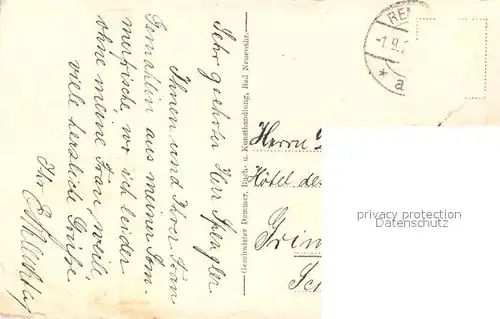 Sehr geehrter Herr Spengler
Ihnen und Ihrer Frau
Gemahlin aus meiner Som-
merfrische, wo ich leider
ohne meine Frau weile,
viele herzliche Grüße
Ihr
Geschwister Dommer, Buch- u. Kunsthandlung, Bad Neuenahr.
-1.9.
* a
Herrn
Hôtel de
privacy protection